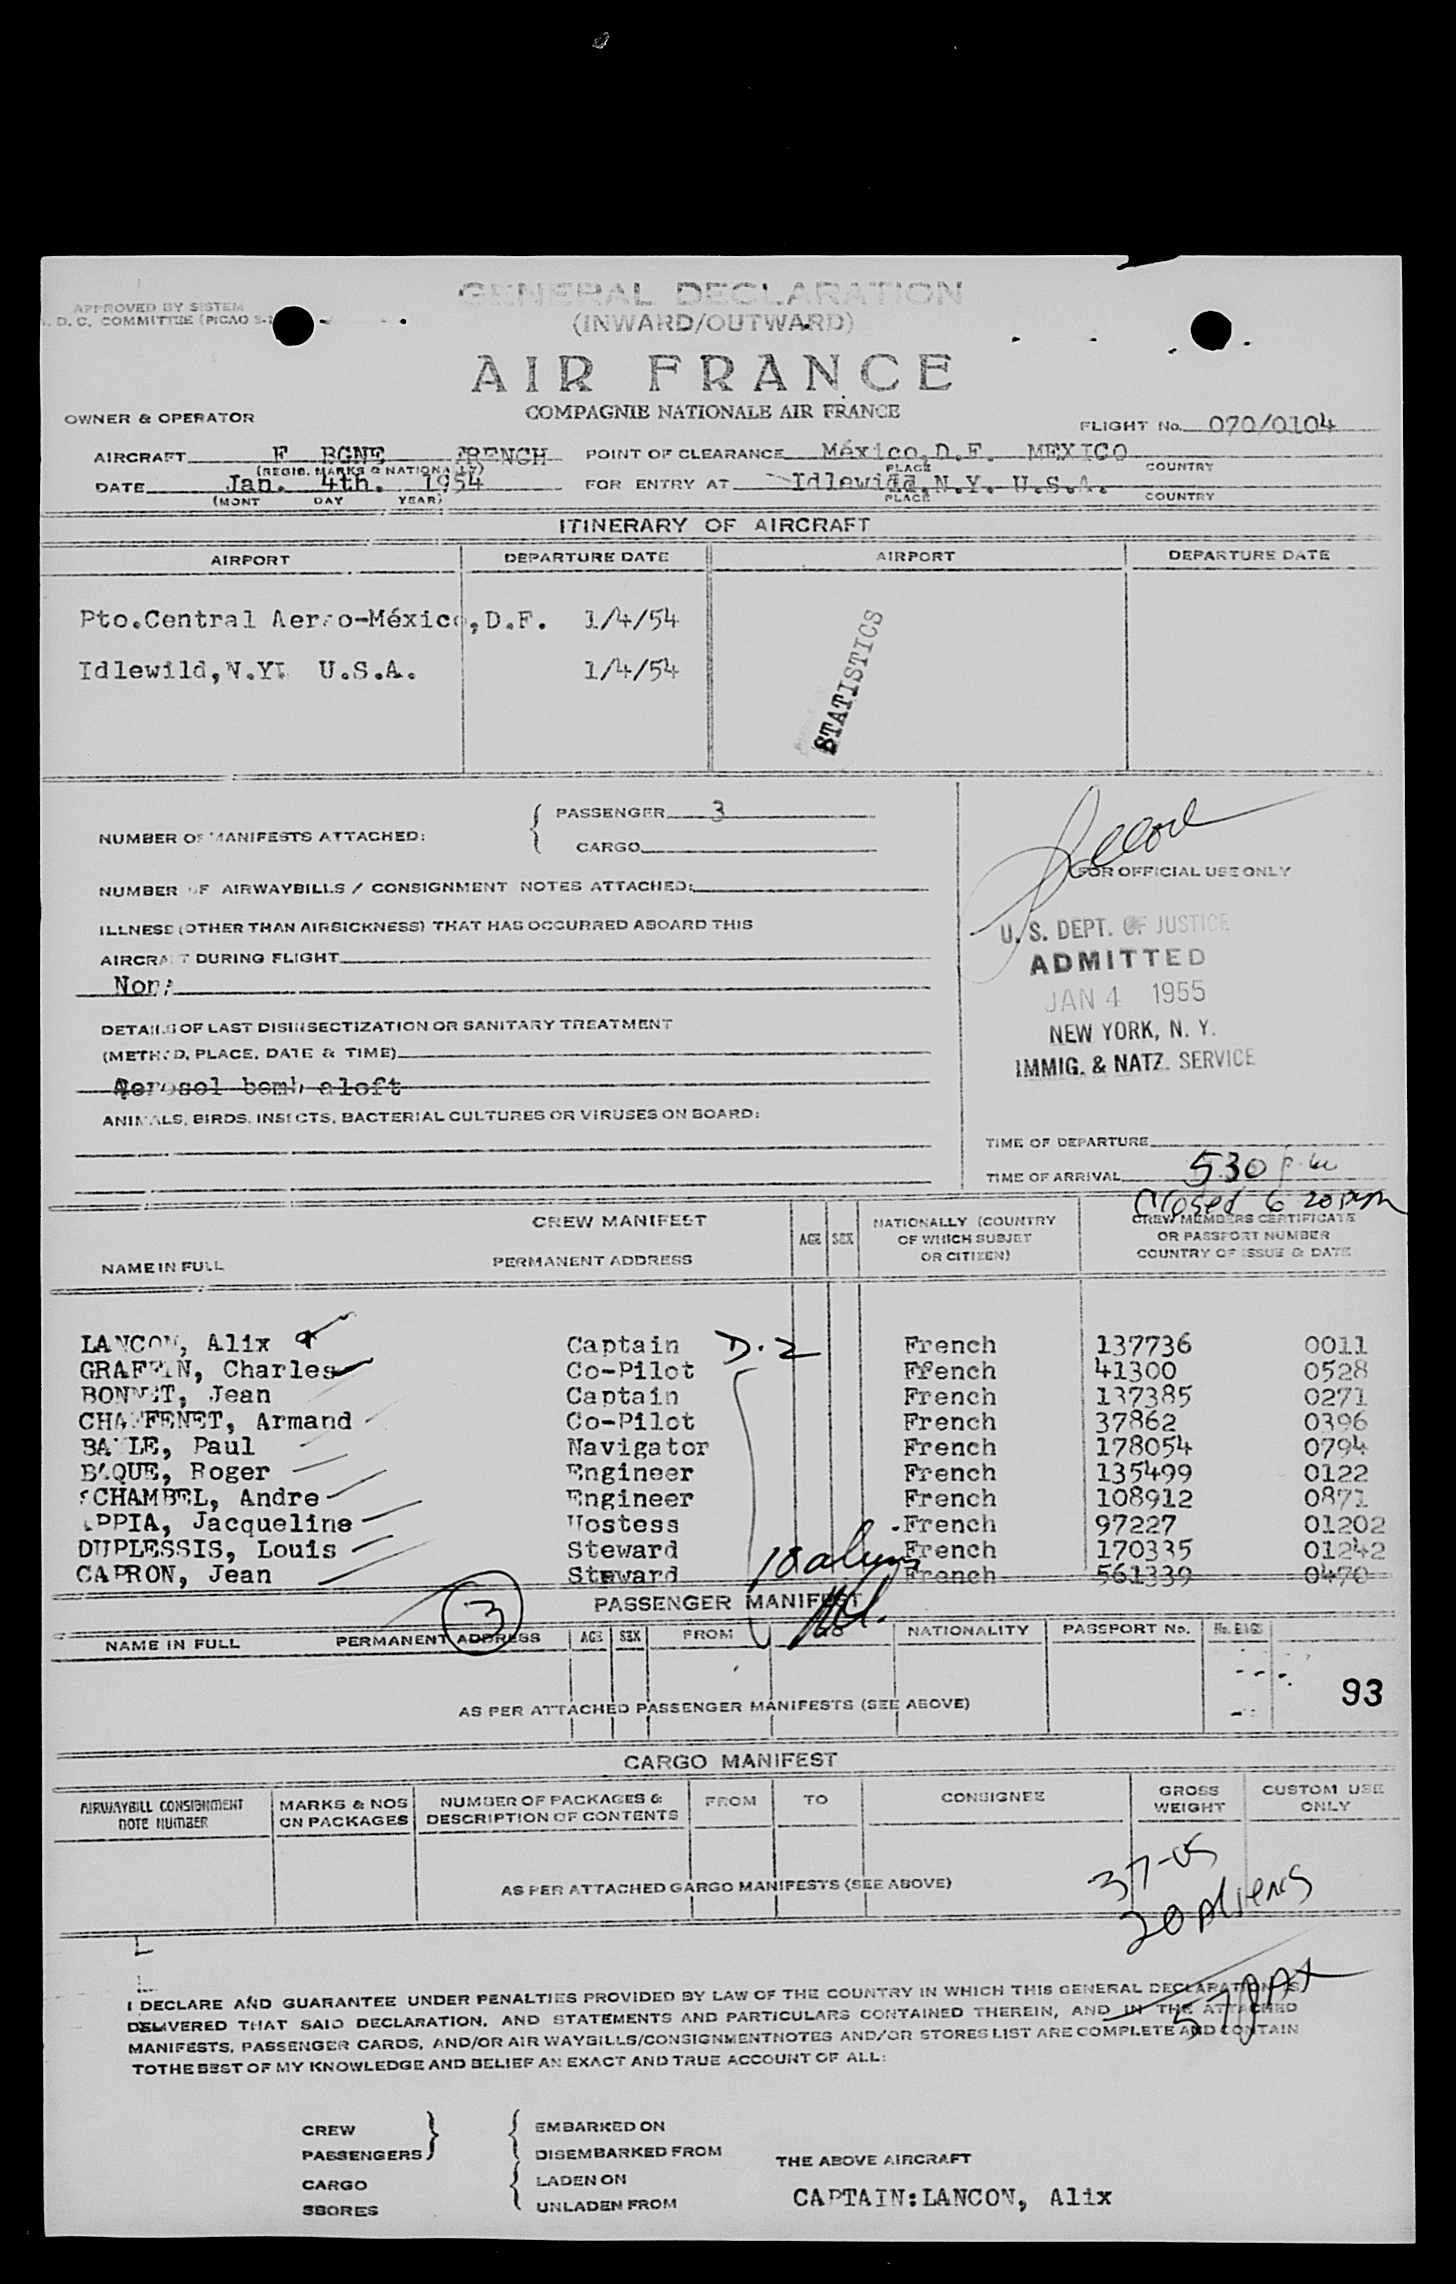 GENERAL DECLARATION
(INWARD/OUTWARD)
APPROVED BY SISTEM
D. C. COMMITTEE (PICAO S-1
AIR FRANCE
COMPAGNIE NATIONALE AIR FRANCE
OWNER & OPERATOR
FLIGHT No. 070/0104
AIRCRAFT F BGNE FRENCH POINT OF CLEARANCE México,D.F. MEXICO
(REGIS. MARKS & NATIONALITY) PLACE COUNTRY
DATE Jan. 4th. 1954 FOR ENTRY AT Idlewild,N.Y. U.S.A.
(MONT DAY YEAR) PLACE COUNTRY
ITINERARY OF AIRCRAFT
AIRPORT DEPARTURE DATE AIRPORT DEPARTURE DATE
Pto.Central Aereo-México,D.F. 1/4/54
Idlewild, U.S.A. 1/4/54
STATISTICS
NUMBER OF MANIFESTS ATTACHED: { PASSENGER 3
CARGO
FOR OFFICIAL USE ONLY
NUMBER OF AIRWAYBILLS / CONSIGNMENT NOTES ATTACHED:
ILLNESS (OTHER THAN AIRSICKNESS) THAT HAS OCCURRED ABOARD THIS
AIRCRAFT DURING FLIGHT
None
U. S. DEPT. OF JUSTICE
ADMITTED
JAN 4 1955
NEW YORK, N. Y.
IMMIG. & NATZ. SERVICE
DETAILS OF LAST DISINSECTIZATION OR SANITARY TREATMENT
(METHOD, PLACE, DATE & TIME)
Aerosol bomb aloft
ANIMALS, BIRDS, INSECTS, BACTERIAL CULTURES OR VIRUSES ON BOARD:
TIME OF DEPARTURE
TIME OF ARRIVAL 530 p.m
Closed 6 20 pm
CREW MANIFEST AGE SEX NATIONALLY (COUNTRY OF WHICH SUBJET OR CITIZEN) CREW MEMBERS CERTIFICATE OR PASSPORT NUMBER COUNTRY OF ISSUE & DATE
NAME IN FULL PERMANENT ADDRESS
LANCON, Alix Captain D.2 French 137736 0011
GRAFFIN, Charles Co-Pilot French 41300 0528
BONNET, Jean Captain French 137385 0271
CHAFFENET, Armand Co-Pilot French 37862 0396
BAYLE, Paul Navigator French 178054 0794
BAQUE, Roger Engineer French 135499 0122
SCHAMBEL, Andre Engineer French 108912 0871
APPIA, Jacqueline Hostess French 97227 01202
DUPLESSIS, Louis Steward French 170335 01242
CAPRON, Jean Steward French 561339 0470
PASSENGER MANIFEST
3
NAME IN FULL PERMANENT ADDRESS AGE SEX FROM TO NATIONALITY PASSPORT No. No. BAGS
AS PER ATTACHED PASSENGER MANIFESTS (SEE ABOVE)
93
CARGO MANIFEST
AIRWAYBILL CONSIGNMENT NOTE NUMBER MARKS & NOS ON PACKAGES NUMBER OF PACKAGES & DESCRIPTION OF CONTENTS FROM TO CONSIGNEE GROSS WEIGHT CUSTOM USE ONLY
AS PER ATTACHED CARGO MANIFESTS (SEE ABOVE)
37-US
20 Aliens
57 PAX
I DECLARE AND GUARANTEE UNDER PENALTIES PROVIDED BY LAW OF THE COUNTRY IN WHICH THIS GENERAL DECLARATION IS
DELIVERED THAT SAID DECLARATION, AND STATEMENTS AND PARTICULARS CONTAINED THEREIN, AND IN THE ATTACHED
MANIFESTS, PASSENGER CARDS, AND/OR AIR WAYBILLS/CONSIGNMENTNOTES AND/OR STORES LIST ARE COMPLETE AND CONTAIN
TO THE BEST OF MY KNOWLEDGE AND BELIEF AN EXACT AND TRUE ACCOUNT OF ALL:
CREW } { EMBARKED ON
PASSENGERS } { DISEMBARKED FROM
THE ABOVE AIRCRAFT
CARGO { LADEN ON
SBORES { UNLADEN FROM
CAPTAIN:LANCON, Alix